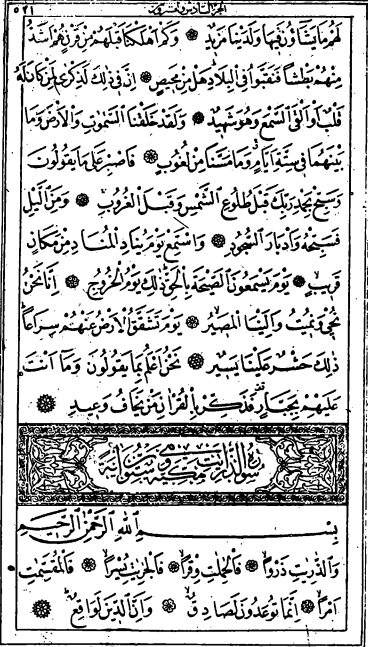 الجزء السادس والعشرون ٥٢١
لَهُمْ مَا يَشَاؤُنَ فِيهَا وَلَدَيْنَا مَزِيدٌ ۞ وَكَمْ اَهْلَكْنَا قَبْلَهُمْ مِنْ قَرْنٍ هُمْ اَشَدُّ
مِنْهُمْ بَطْشًا فَنَقَّبُوا فِي الْبِلَادِ هَلْ مِنْ مَحِيصٍ ۞ اِنَّ فِي ذٰلِكَ لَذِكْرٰى لِمَنْ كَانَ لَهُ
قَلْبٌ اَوْ اَلْقَى السَّمْعَ وَهُوَ شَهِيدٌ ۞ وَلَقَدْ خَلَقْنَا السَّمٰوَاتِ وَالْاَرْضَ وَمَا
بَيْنَهُمَا فِي سِتَّةِ اَيَّامٍ وَمَا مَسَّنَا مِنْ لُغُوبٍ ۞ فَاصْبِرْ عَلٰى مَا يَقُولُونَ
وَسَبِّحْ بِحَمْدِ رَبِّكَ قَبْلَ طُلُوعِ الشَّمْسِ وَقَبْلَ الْغُرُوبِ ۞ وَمِنَ الَّيْلِ
فَسَبِّحْهُ وَاَدْبَارَ السُّجُودِ ۞ وَاسْتَمِعْ يَوْمَ يُنَادِ الْمُنَادِ مِنْ مَكَانٍ
قَرِيبٍ ۞ يَوْمَ يَسْمَعُونَ الصَّيْحَةَ بِالْحَقِّ ذٰلِكَ يَوْمُ الْخُرُوجِ ۞ اِنَّا نَحْنُ
نُحْيِ وَنُمِيتُ وَاِلَيْنَا الْمَصِيرُ ۞ يَوْمَ تَشَقَّقُ الْاَرْضُ عَنْهُمْ سِرَاعًا
ذٰلِكَ حَشْرٌ عَلَيْنَا يَسِيرٌ ۞ نَحْنُ اَعْلَمُ بِمَا يَقُولُونَ وَمَا اَنْتَ
عَلَيْهِمْ بِجَبَّارٍ فَذَكِّرْ بِالْقُرْاٰنِ مَنْ يَخَافُ وَعِيدِ ۞
سورة الذاريات مكية وهى ستون آية
بِسْمِ اللهِ الرَّحْمٰنِ الرَّحِيمِ
وَالذَّارِيَاتِ ذَرْوًا ۞ فَالْحَامِلَاتِ وِقْرًا ۞ فَالْجَارِيَاتِ يُسْرًا ۞ فَالْمُقَسِّمَاتِ
اَمْرًا ۞ اِنَّمَا تُوعَدُونَ لَصَادِقٌ ۞ وَاِنَّ الدِّينَ لَوَاقِعٌ ۞